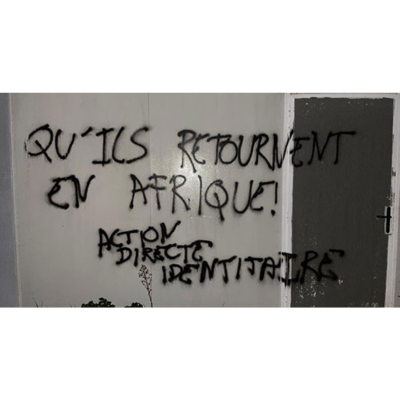 QU'ILS RETOURNENT
EN AFRIQUE!
ACTION
DIRECTE
IDENTITAIRE